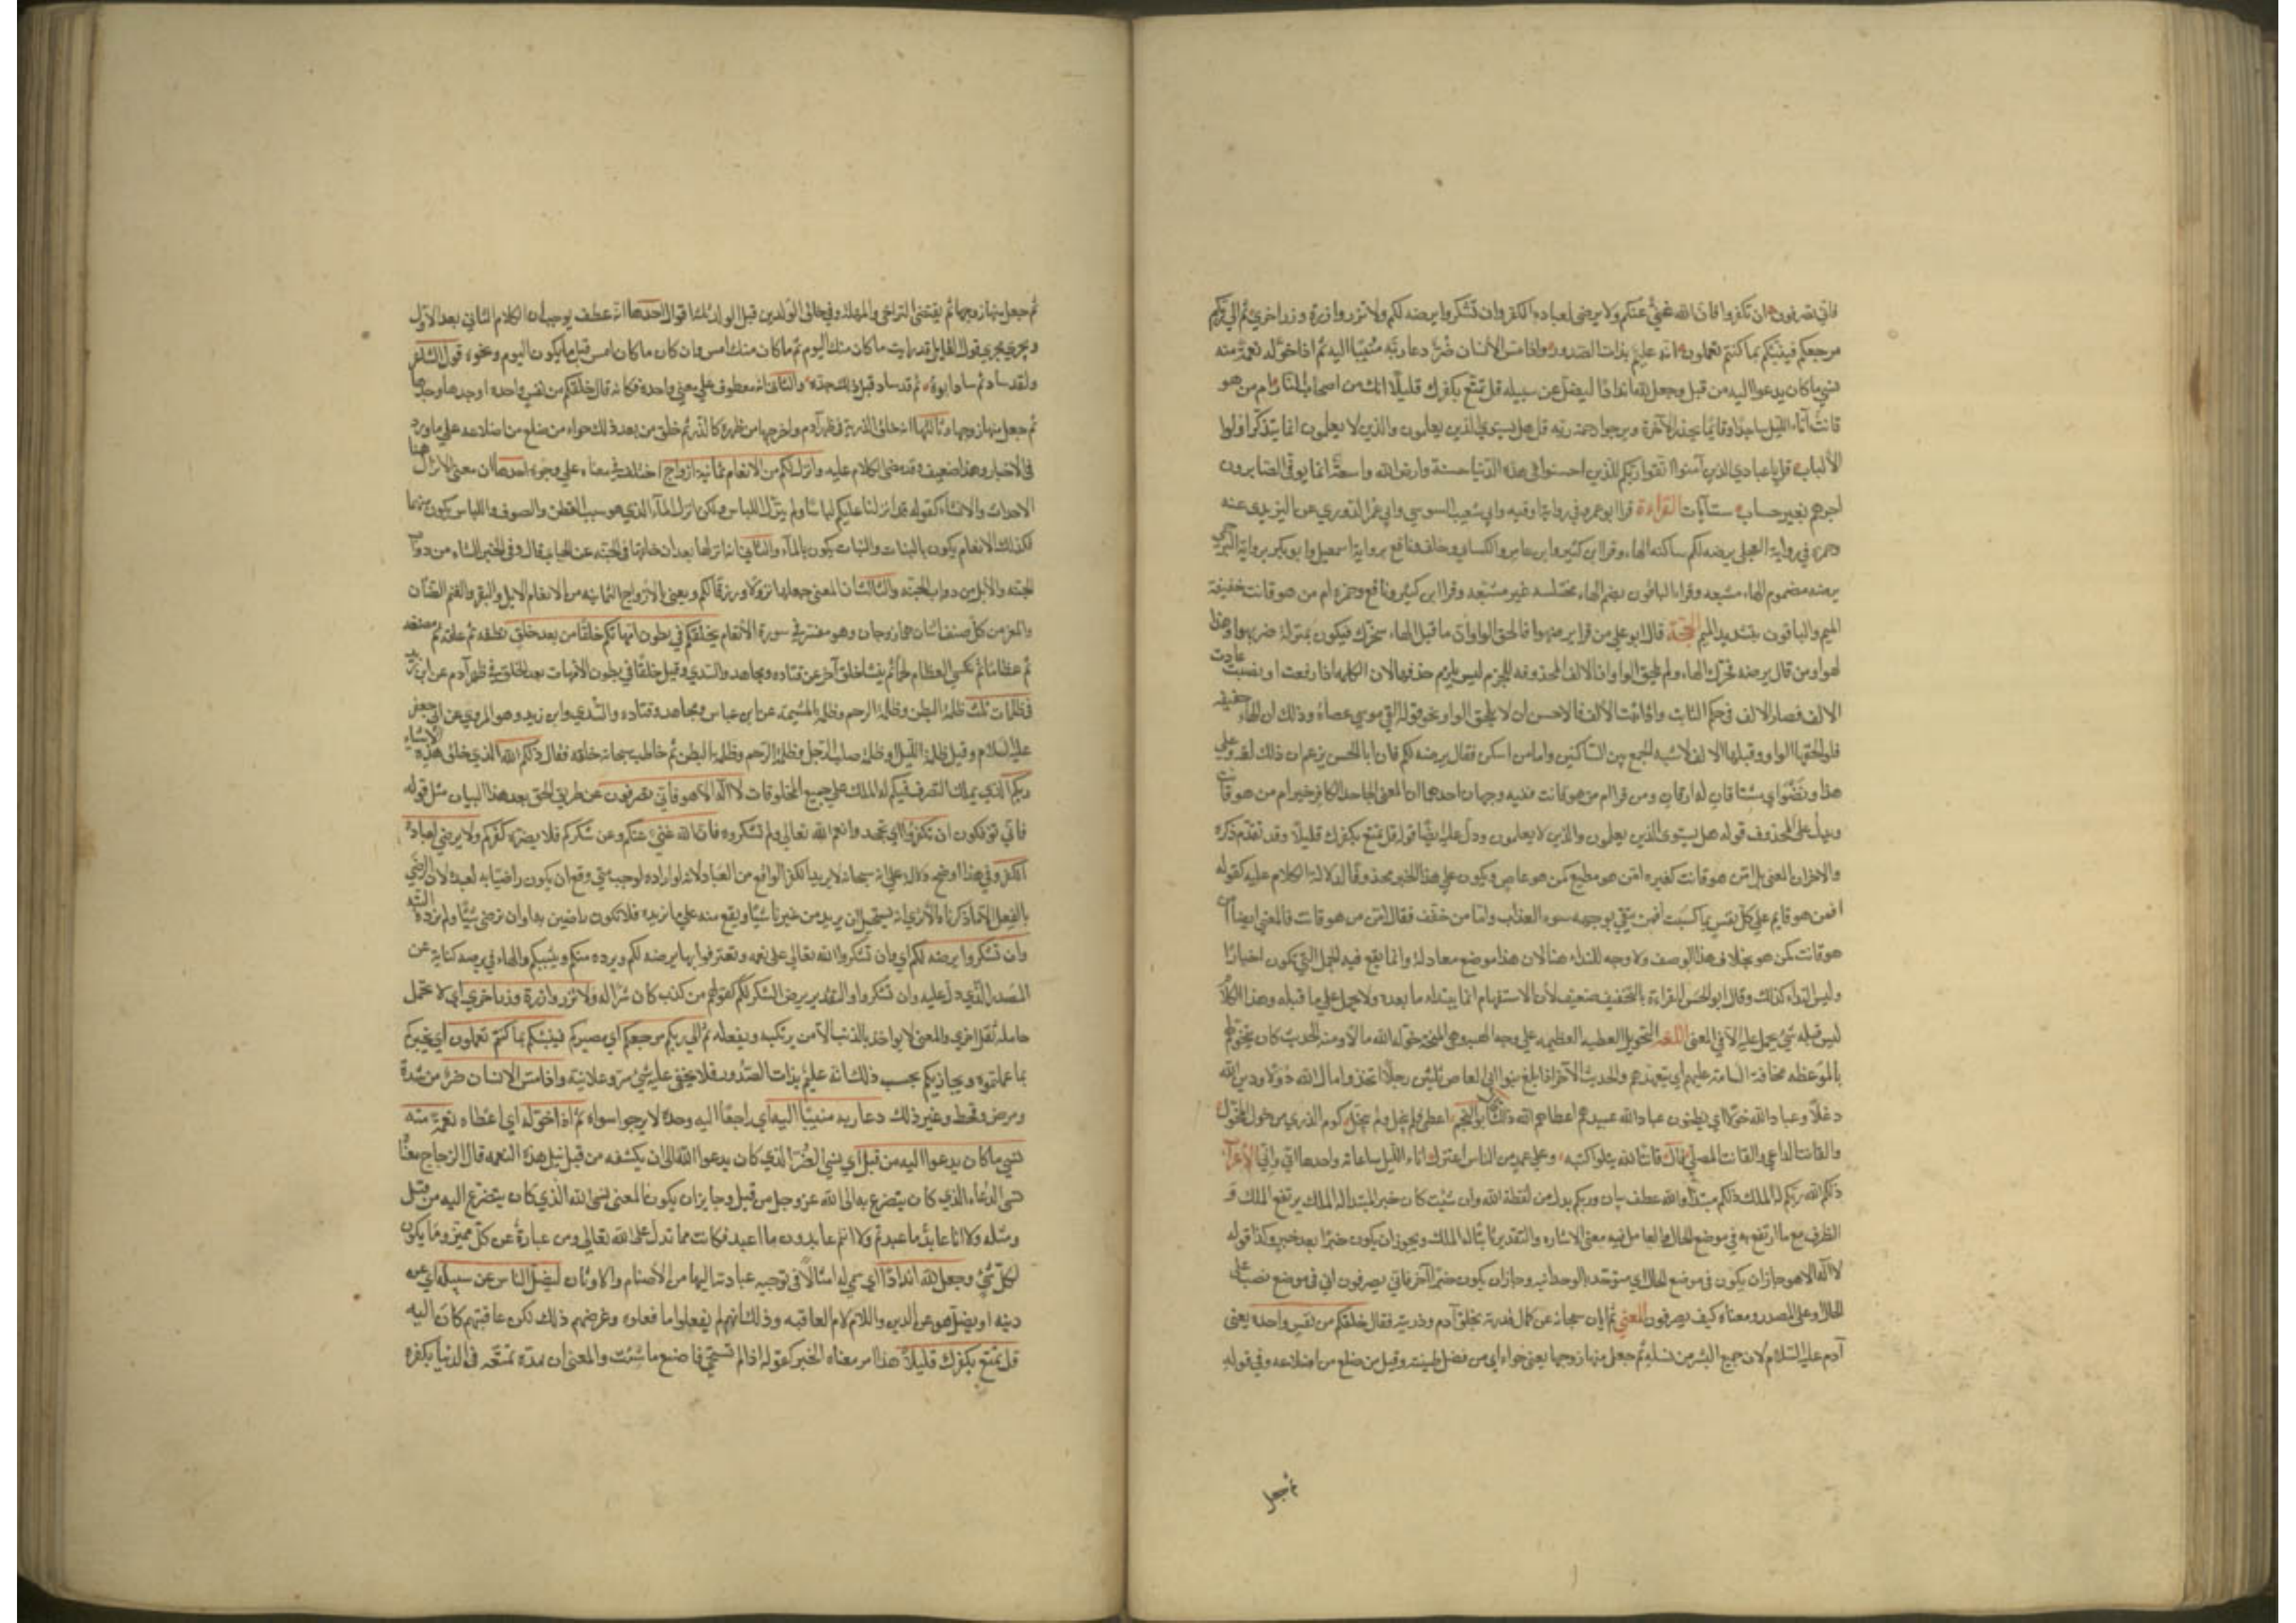 فاني تصرفون ان تكفروا فان الله غني عنكم ولا يرضى لعباده الكفر وان تشكروا يرضه لكم ولا تزر وازرة وزر اخري ثم الي ربكم
مرجعكم فينبئكم بما كنتم تعملون انه عليم بذات الصدور واذا مس الانسان ضر دعا ربه منيبا اليه ثم اذا خوله نعمة منه
نسي ما كان يدعوا اليه من قبل وجعل لله اندادا ليضل عن سبيله قل تمتع بكفرك قليلا انك من اصحاب النار ام من هو
قانت آناء الليل ساجدا وقائما يحذر الآخرة ويرجوا رحمة ربه قل هل يستوي الذين يعلمون والذين لا يعلمون انما يتذكر اولوا
الألباب قل يا عبادي الذين آمنوا اتقوا ربكم للذين احسنوا في هذه الدنيا حسنة وارض الله واسعة انما يوفى الصابرون
اجرهم بغير حساب ست آيات القراءة قرا ابو عمرو في رواية اوقيه وابي شعيب السوسي وابي عمر الدوري عن اليزيدي عنه
وحمزة في رواية العجلي يرضه لكم ساكنة الهاء وقرا ابن كثير وابن عامر والكسائي وخلف ونافع برواية اسمعيل وابو بكر برواية البرجمي
يرضه مضموم الهاء مشبعه وقرا الباقون بضم الهاء مختلسه غير مشبعه وقرا ابن كثير ونافع وحمزه ام من هو قانت خفيفة
الميم والباقون بتشديد الميم الحجة قال ابو علي من قرا يرضهوا فالحق الواو ان ما قبل الهاء متحرك فيكون بمنزلة ضربهوا وهذا
لهو ومن قال يرضه فحرك الهاء ولم يلحق الواو ان الالف المحذوفه للجزم ليس يلزم حذفها لان الكلمه اذا رفعت او نصبت عادت
الالف فصار الالف في حكم الثابت واذا ثبت الالف فالاحسن ان لا يلحق الواو نحو قوله القي موسي عصاه وذلك ان الهاء خفيفه
فلو لحقها الواو وقبلها الالف لاشبه الجمع بين الساكنين واما من اسكن فقال يرضه لكم فان ابا الحسن يزعم ان ذلك لغه وعلي
هذا ومن قرا ام من هو قانت ففيه وجهان احدهما ان المعنى الجاحد الكافر خير ام من هو قانت
ويدل على المحذوف قوله هل يستوي الذين يعلمون والذين لا يعلمون ودل عليه ايضا قوله قل تمتع بكفرك قليلا وقد تقدم ذكره
والاخر ان المعنى بل امن هو قانت كغيره امن هو مطيع كمن هو عاص ويكون على هذا الخبر محذوفا لدلالة الكلام عليه كقوله
افمن هو قايم على كل نفس بما كسبت افمن يتقي بوجهه سوء العذاب واما من خفف فقال امن هو قانت فالمعنى ايضا امن
هو قانت كمن هو بخلاف هذا الوصف ولا وجه للنداء هنا لان هذا موضع معادلة وانما يقع فيه الجمل التي تكون اخبارا
وليس النداء كذلك وقال ابو الحسن القراءة بالتخفيف ضعيف لأن الاستفهام انما يبتداء ما بعده ولا يحمل على ما قبله وهذا الكلام
ليس قبله شيء يحمل عليه الا في المعنى اللغه التخويل العطيه العظيمه على وجه الهبه وهي المنحة خوله الله مالا ومنه الحديث كان يتخولهم
بالموعظه مخافة السامة عليهم اي يتعهدهم والحديث الآخر اذا بلغ بنوا ابي العاص ثلثين رجلا اتخذوا مال الله دولا ودين الله
دغلا وعباد الله خولا اي يظنون عباد الله عبيدهم اعطاهم الله ذلك قال ابو النجم اعطى فلم يبخل ولم يبخل كوم الذرى من خول المخول
والقانت الداعي والقانت المصلي قال قانتا لله يتلوا كتبه وعلى عمد من الناس اعتزل آناء الليل ساعاته واحدها اني وانى الاعراب
ذلكم الله ربكم له الملك ذلكم مبتدا والله عطف بيان وربكم بدل من لفظة الله وان شئت كان خبر المبتدا له الملك يرتفع الملك و
الظرف مع ما ارتفع به في موضع الحال والعامل فيه معنى الاشاره والتقدير ثابتا له الملك ويجوز ان يكون خبرا بعد خبر وكذا قوله
لا اله الا هو جاز ان يكون في موضع الحال اي متوحدا بالوحدانيه وجاز ان يكون خبرا آخر فاني يصرفون اني في موضع نصب على
الحال وعلى المصدر ومعناه كيف يصرفون المعني ثم ابان سبحانه عن كمال قدرته بخلق آدم وذريته فقال خلقكم من نفس واحده يعنى
آدم عليه السلام لان جميع البشر من نسله ثم جعل منها زوجها يعنى حواء اي من فضل طينته وقيل من ضلع من اضلاعه وفي قوله
ثم جعل
ثم جعل منها زوجها ثم يقتضي التراخي والمهلة وفي خلق الوالدين قبل الولد ثلثة اقوال احدها انه عطف يوجب ان الكلام الثاني بعد الأول
ويجري مجرى قول القايل قد رايت ما كان منك اليوم ثم ما كان منك امس وان كان ما كان امس قبل ما يكون اليوم ونحوه قول الشاعر
ولقد ساد ثم ساد ابوه ثم قد ساد قبل ذلك جده والثاني انه معطوف على معنى واحدة فكانه قال خلقكم من نفس واحده اوجدها وحدها
ثم جعل منها زوجها وثالثها انه خلق الذرية في ظهر آدم واخرجها من ظهره كالذر ثم خلق من بعد ذلك حواء من ضلع من اضلاعه على ما ورد
في الاخبار وهذا ضعيف وقد مضى الكلام عليه وانزل لكم من الانعام ثمانية ازواج اختلف في معناه على وجوه احدها ان معنى الانزال هنا
الاحداث والانشاء كقوله قد انزلنا عليكم لباسا ولم ينزل اللباس ولكن انزل الماء الذي هو سبب القطن والصوف واللباس يكون منهما
فكذلك الانعام يكون بالنبات والنبات يكون بالماء والثاني انه انزلها بعد ان خلقها في الجنه عن الجبائي قال وفي الخبر الشاء من دواب
الجنه والأبل من دواب الجنه والثالث ان المعنى جعلها نزلا ورزقا لكم ويعنى بالازواج الثمانيه من الانعام الابل والبقر والغنم الضأن
والمعز من كل صنف اثنان هما زوجان وهو مفسر في سورة الأنعام يخلقكم في بطون امهاتكم خلقا من بعد خلق نطفه ثم علقه ثم مضغه
ثم عظاما ثم يكسي العظام لحما ثم ينشا خلق آخر عن قتاده ومجاهد والسدي وقيل خلقا في بطون الامهات بعد الخلق في ظهر آدم عن ابن زيد
في ظلمات ثلث ظلمة البطن وظلمة الرحم وظلمة المشيمة عن ابن عباس ومجاهد وقتاده والسدي وابن زيد وهو المروي عن ابي جعفر
عليه السلام وقيل ظلمة الليل وظلمة صلب الرجل وظلمة الرحم وظلمة البطن ثم خاطب سبحانه خلقه فقال ذلكم الله الذي خلق هذه الاشياء
ربكم الذي يملك التصرف فيكم له الملك على جميع المخلوقات لا اله الا هو فاني تصرفون عن طريق الحق بعد هذا البيان مثل قوله
فاني توفكون ان تكفروا اي تجحدوا نعم الله تعالى ولم تشكروه فان الله غني عنكم وعن شكركم فلا يضره كفركم ولا يرضى لعباده
الكفر وفي هذا اوضح دلالة على انه سبحانه لا يريد الكفر الواقع من العباد لانه لو اراده لوجب متى وقع ان يكون راضيا به لعبده لان الرضى
بالفعل ليس الا ما ذكرناه الا ترى انه يستحيل ان يريد من غيرنا شيئا ويقع منه على ما نريده فلا نكون راضين به او ان نرضى شيئا ولم نرده البته
وان تشكروا يرضه لكم اي وان تشكروا الله تعالى على نعمه وتعترفوا بها يرضه لكم ويرده منكم ويثيبكم والهاء في يرضه كناية عن
المصدر الذي دل عليه وان تشكروا والتقدير يرض الشكر لكم كقولهم من كذب كان شرا له ولا تزر وازرة وزر اخري اي لا تحمل
حاملة ثقل اخري والمعنى لا يواخذ بالذنب الا من يرتكبه ويفعله ثم الى ربكم مرجعكم اي مصيركم فينبئكم بما كنتم تعملون اي يخبركم
بما عملتموه ويجازيكم بحسب ذلك انه عليم بذات الصدور فلا يخفى عليه شيء سر وعلانية واذا مس الانسان ضر من شدة
ومرض وقحط وغير ذلك دعا ربه منيبا اليه اي راجعا اليه وحده لا يرجوا سواه ثم اذا خوله اي اعطاه نعمة منه
نسي ما كان يدعوا اليه من قبل اي نسي الضر الذي كان يدعوا الله الى ان يكشفه من قبل نيل هذه النعمه قال الزجاج معناه
نسى الدعاء الذي كان يتضرع به الى الله عز وجل من قبل وجايز ان يكون المعنى نسى الله الذي كان يتضرع اليه من قبل
ومثله ولا انا عابد ما عبدتم ولا انتم عابدون ما اعبد فكانت مما تدل على الله تعالى ومن عبارة عن كل مميز وما يكون
لكل شيء وجعل لله اندادا اي سمى له امثالا في توجيه عبادته اليها من الأصنام والاوثان ليضل الناس عن سبيله اي عن
دينه او يضل هو عن الدين واللام لام العاقبه وذلك انهم لم يفعلوا ما فعلوه وغرضهم ذلك لكن عاقبتهم كان اليه
قل تمتع بكفرك قليلا هذا امر معناه الخبر كقوله اذا لم تستحي فاصنع ما شئت والمعنى ان مدة تمتعه في الدنيا بكفره